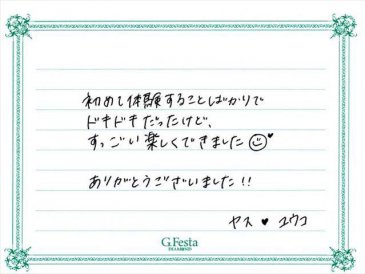 初めて体験することばかりで
ドキドキだったけど、
すっごい楽しくできました☺♥
ありがとうございました!!
ヤス ♥ ユウコ
G.Festa
DIAMOND